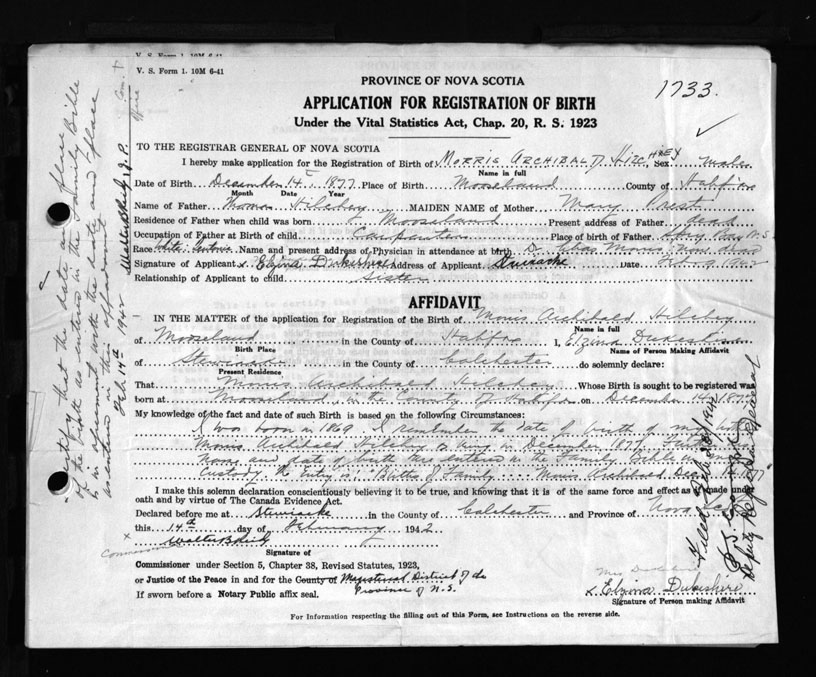 V. S. Form 1. 10M 6-41
V. S. Form 1. 10M 6-41
PROVINCE OF NOVA SCOTIA
1733.
APPLICATION FOR REGISTRATION OF BIRTH
Under the Vital Statistics Act, Chap. 20, R. S. 1923
TO THE REGISTRAR GENERAL OF NOVA SCOTIA
I hereby make application for the Registration of Birth of MORRIS ARCHIBALD HILCHEY Sex Male
Name in full
Date of Birth December 14, 1877 Place of Birth Mooseland County of Halifax
Month Date Year
Name of Father Thomas Hilchey MAIDEN NAME of Mother Mary Prest
Residence of Father when child was born Mooseland Present address of Father dead
Occupation of Father at Birth of child Carpenter Place of birth of Father
Race White Name and present address of Physician in attendance at birth Dr
Signature of Applicant x Elzina Dukeshire Address of Applicant Stewiacke Date Feb. 9 1942
Relationship of Applicant to child Sister
AFFIDAVIT
IN THE MATTER of the application for Registration of the Birth of Morris Archibald Hilchey
Name in full
of Mooseland in the County of Halifax I, Elzina Dukeshire
Birth Place Name of Person Making Affidavit
of Stewiacke in the County of Colchester do solemnly declare:
Present Residence
That Morris Archibald Hilchey Whose Birth is sought to be registered was
born at Mooseland in the County of Halifax on December 14, 1877
My knowledge of the fact and date of such Birth is based on the following Circumstances:
I was born in 1869. I remember the date of birth of my brother
Morris Archibald Hilchey as being in December 1877.
Name and date of birth are entered in the Family Bible in my
Custody the Entry is: "Births of Family Morris Archibald Dec. 1877"
I make this solemn declaration conscientiously believing it to be true, and knowing that it is of the same force and effect as if made under
oath and by virtue of The Canada Evidence Act.
Declared before me at Stewiacke in the County of Colchester and Province of Nova Scotia
this 14th day of February 1942
x
Signature of
Commissioner under Section 5, Chapter 38, Revised Statutes, 1923,
or Justice of the Peace in and for the County or Magisterial District of the
Province of N.S.
If sworn before a Notary Public affix seal.
x Elzina Dukeshire
Signature of Person making Affidavit
For Information respecting the filling out of this Form, see Instructions on the reverse side.
I certify that the date and place
of the birth as entered in the family Bible
is in agreement with the date and place
as entered in this affidavit
Feb 14th 1942
J. P.
Filed Feb 28/1942
Deputy Registrar General